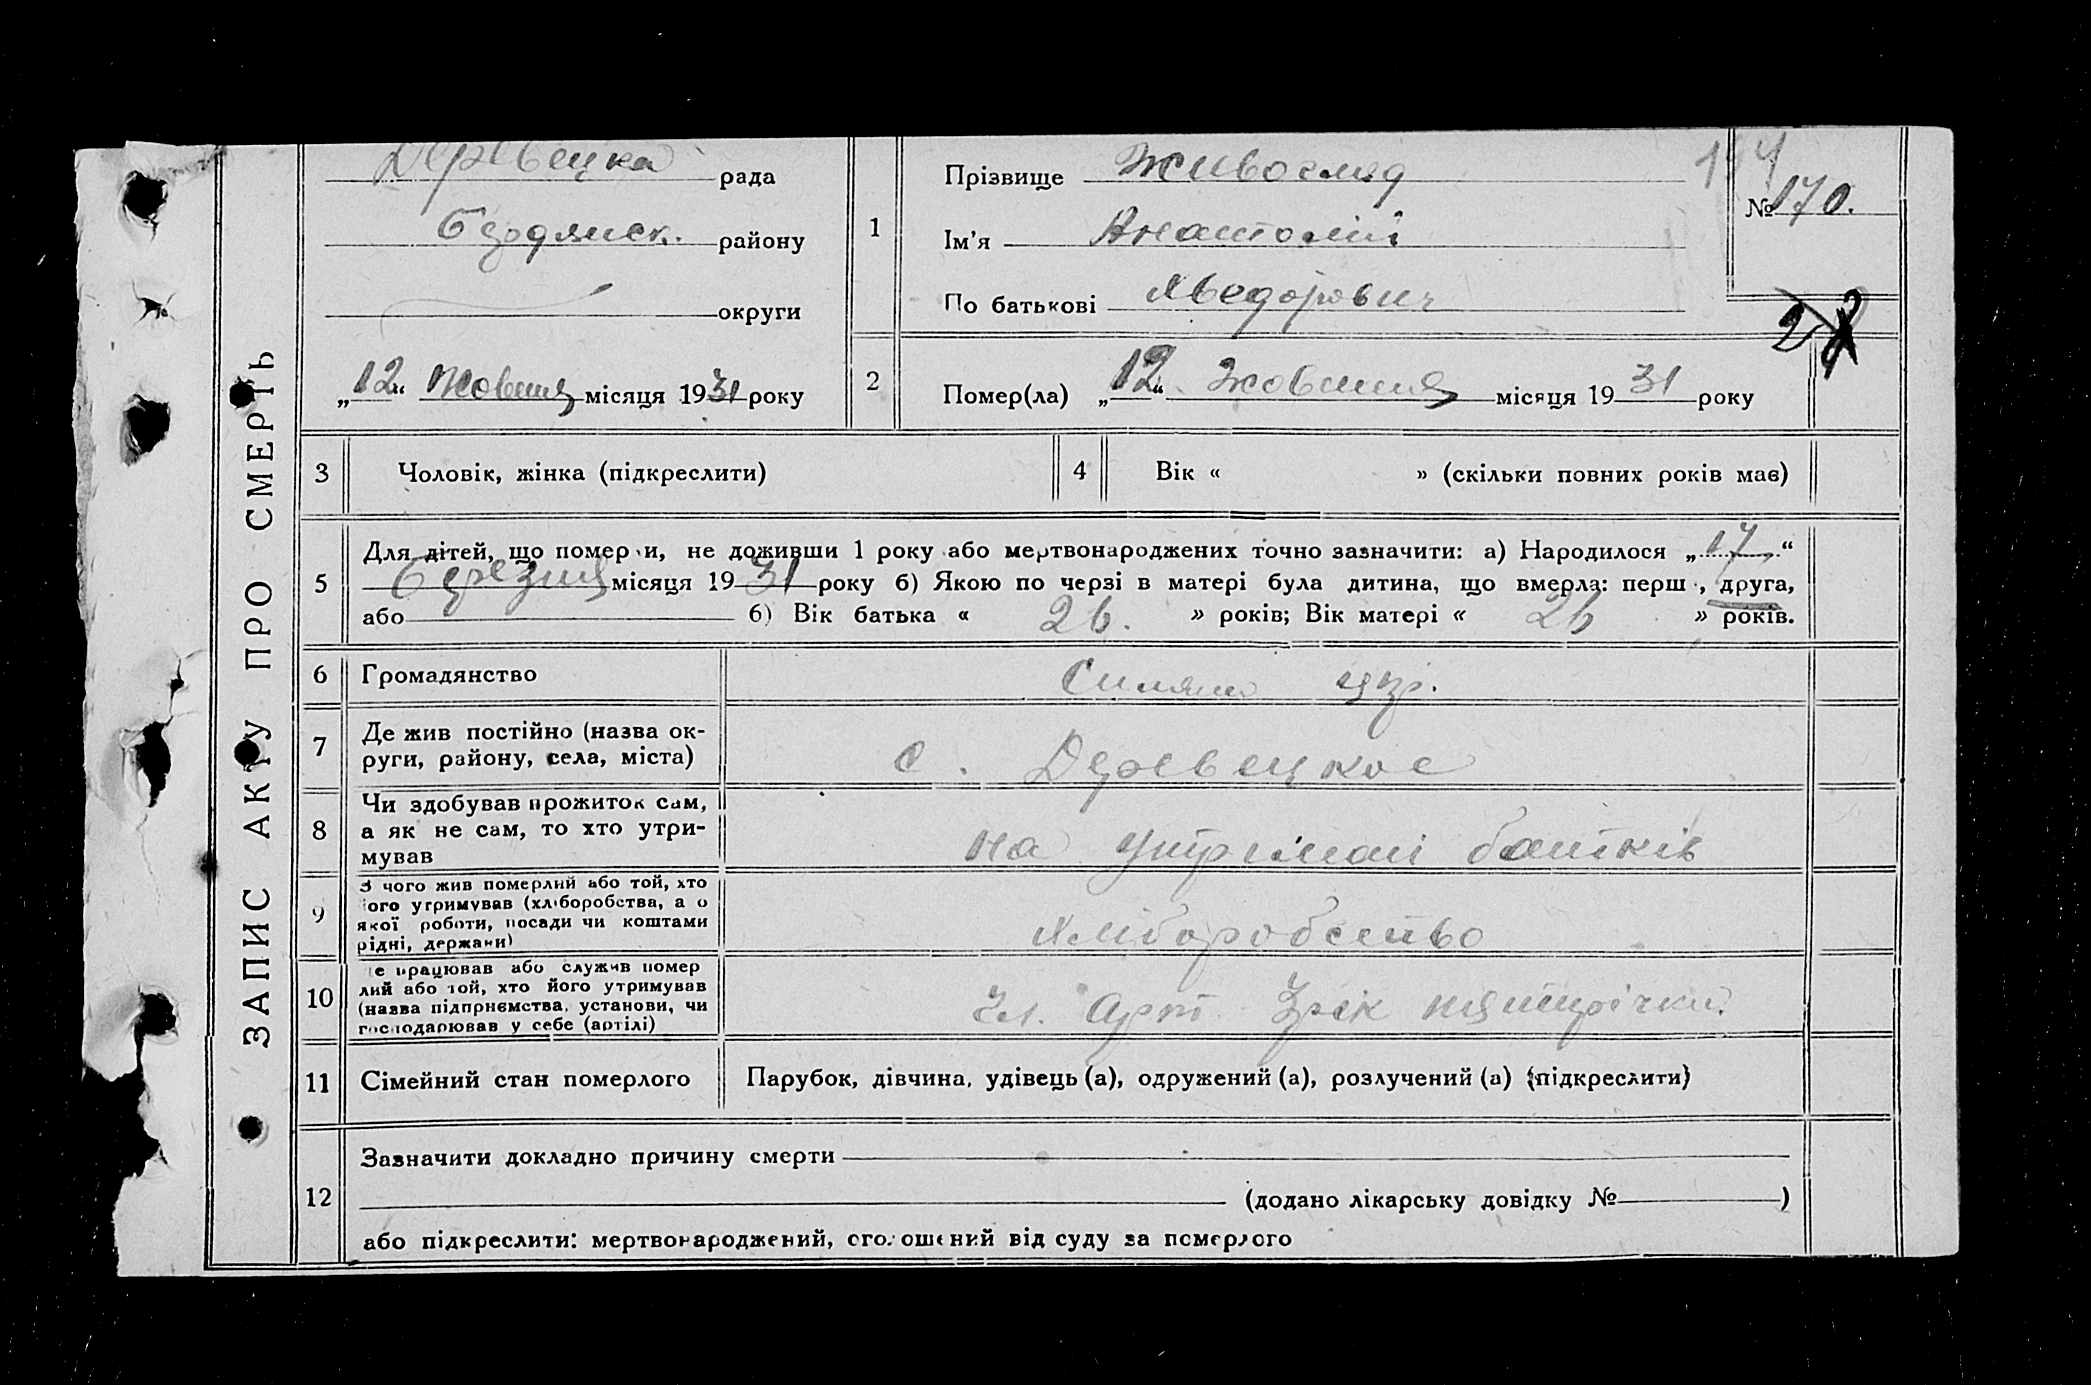 ЗАПИС АКТУ ПРО СМЕРТЬ
Деревецка рада
Бердянск. району
округи
„12“ Жовтня місяця 1931 року
1
Прізвище Живогляд
Ім'я Анатолій
По батькові Хведорович
№ 170.
2
Помер(ла) „12“ Жовтня місяця 1931 року
3 Чоловік, жінка (підкреслити)
4 Вік « » (скільки повних років має)
5
Для дітей, що померли, не доживши 1 року або мертвонароджених точно зазначити: а) Народилося „17“
Березня місяця 1931 року б) Якою по черзі в матері була дитина, що вмерла: перша, друга,
або 6) Вік батька « 26. » років; Вік матері « 26 » років.
6 Громадянство
укр.
7
Де жив постійно (назва ок-
руги, району, села, міста)
с. Деревецкое
8
Чи здобував прожиток сам,
а як не сам, то хто утри-
мував
на утримані батків
9
З чого жив померлий або той, хто
його утримував (хліборобства, а о
якої роботи, посади чи коштами
рідні, держави)
Хліборобство
10
Де працював або служив помер
лий або той, хто його утримував
(назва підприємства, установи, чи
господарював у себе (артілі)
Чл. Арт 3рік пятирічки.
11 Сімейний стан померлого
Парубок, дівчина, удівець (а), одружений (а), розлучений (а) (підкреслити)
12
Зазначити докладно причину смерти
(додано лікарську довідку № )
або підкреслити: мертвонароджений, оголошений від суду за померлого